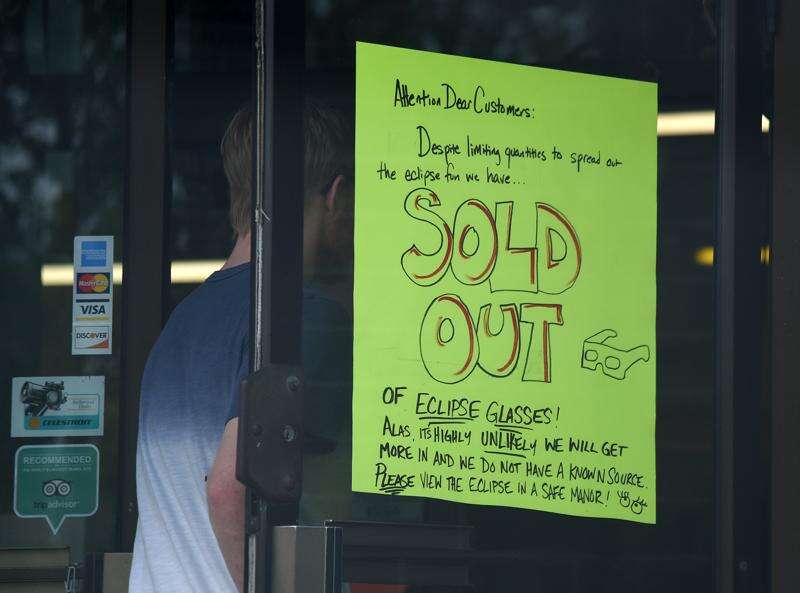 Attention Dear Customers:
Despite limiting quantities to spread out
the eclipse fun we have...
SOLD
OUT
OF ECLIPSE GLASSES!
ALAS, ITS HIGHLY UNLIKELY WE WILL GET
MORE IN AND WE DO NOT HAVE A KNOWN SOURCE.
PLEASE VIEW THE ECLIPSE IN A SAFE MANOR!
MasterCard
VISA
DISCOVER
CELESTRON
RECOMMENDED
tripadvisor